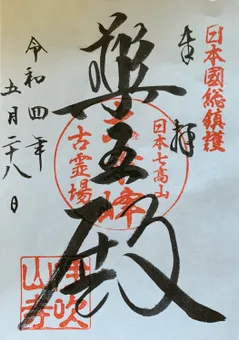 日本國総鎮護
奉拝
日本七高山
薬王殿
古霊場
令和四年
五月二十八日
伊吹
山寺